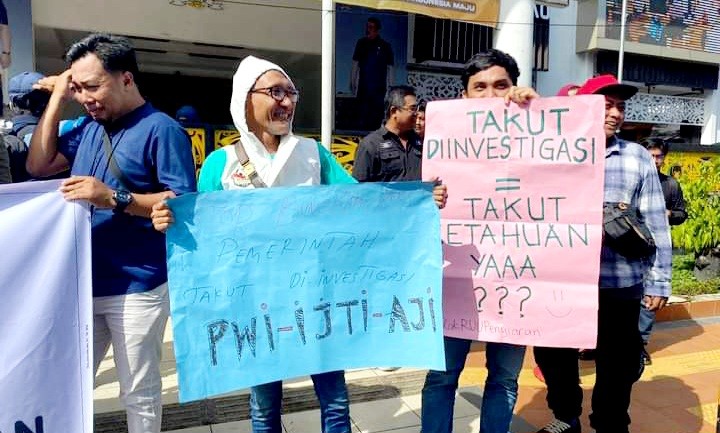 INDONESIA MAJU
PEMERINTAH
TAKUT DI-INVESTIGASI
PWI-IJTI-AJI
TAKUT
DIINVESTIGASI
=
TAKUT
KETAHUAN
YAAA
???
AN